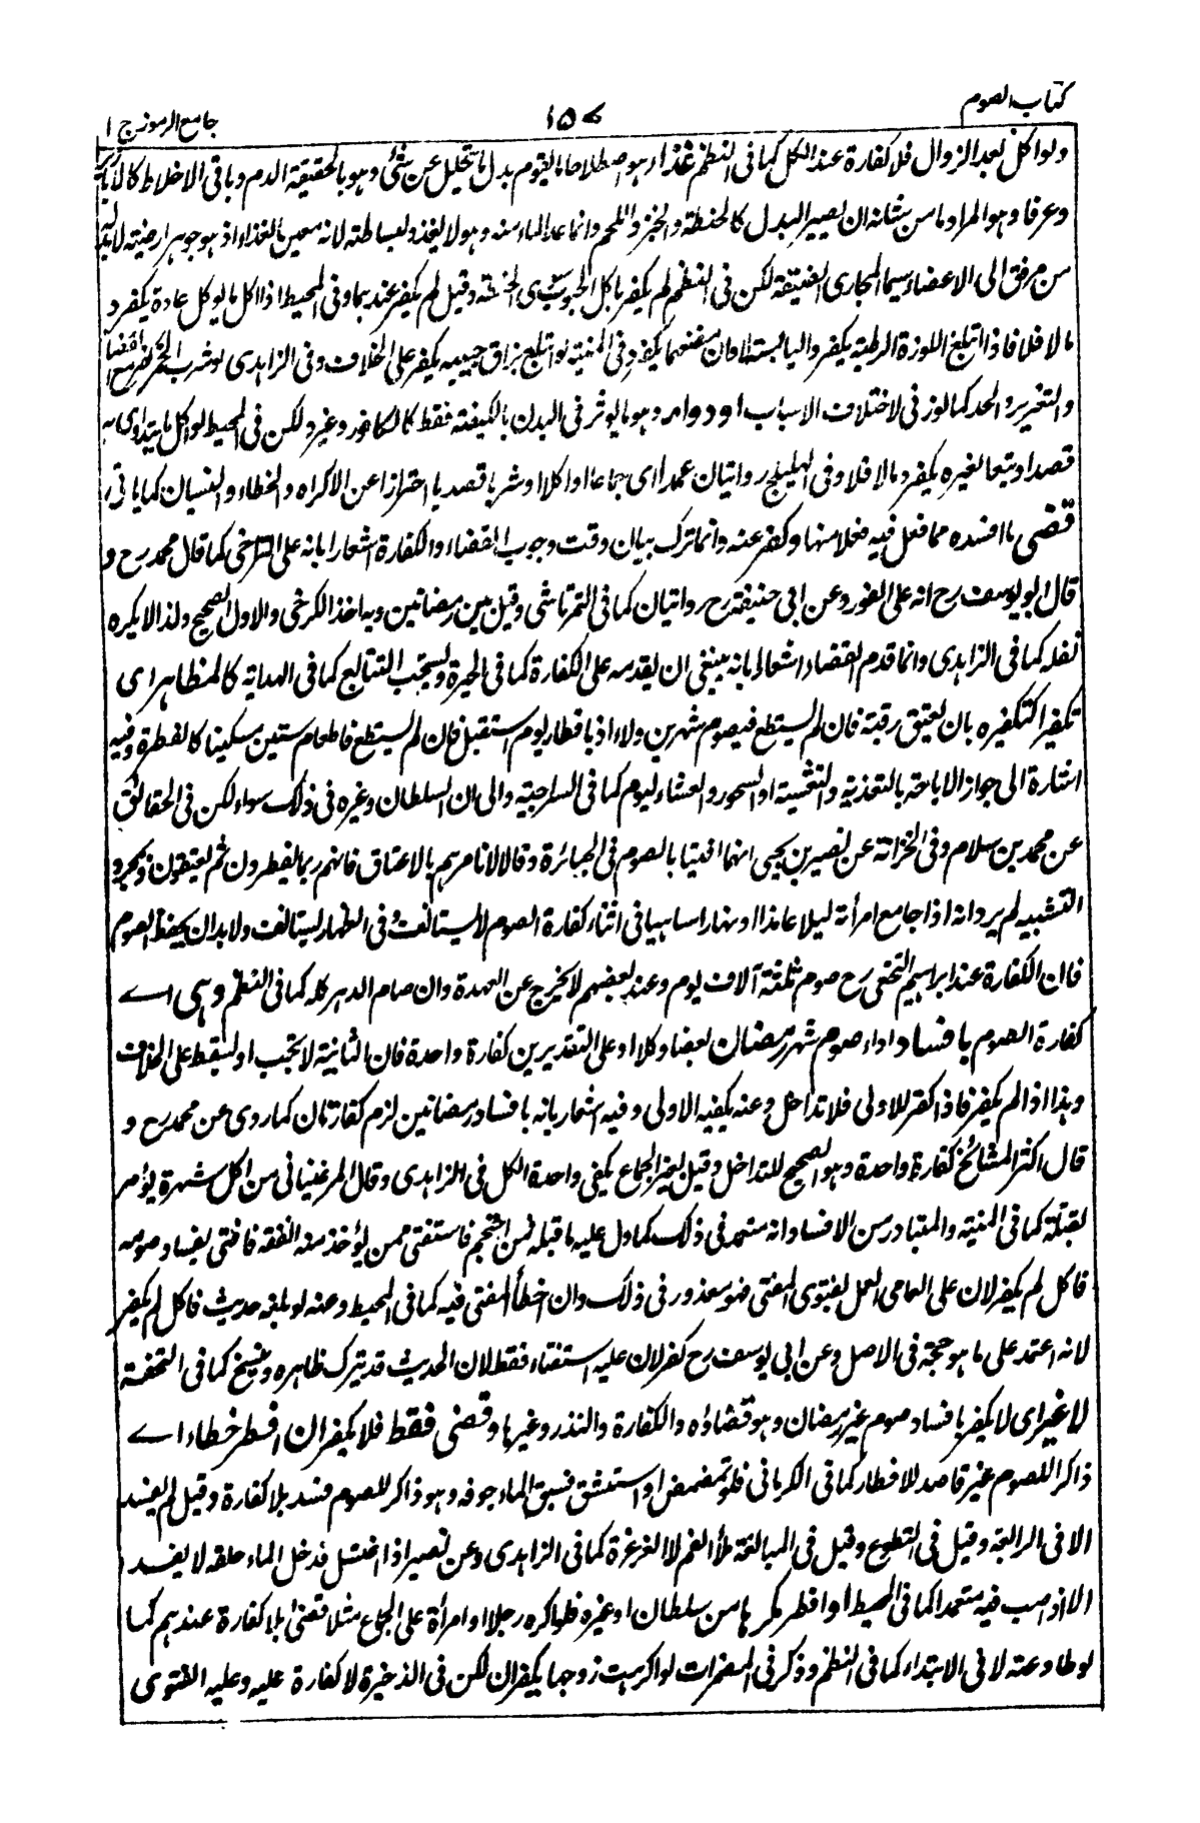 كتاب الصوم ١٥٧ جامع الرموز ج ١
ولو اكل بعد الزوال فلا كفارة عند الكل كما فى النظم غذاء وهو اصطلاحا ما يقوم بدل ما يتحلل عن شئ وهو بالحقيقة الدم وباقى الاخلاط كالابازير
وعرفا وهو المراد ما من شانه ان يصير البدل كالحنطة والخبز واللحم وانما عد الماء منه وهو لا يغذو لبساطته لانه معين للغذاء اذ هو جوهر ارضيته لا بد له
من مرقق الى الاعضاء سيما المجارى الضيقة لكن فى النظم لم يكفر باكل الحبوب سوى الحنطة وقيل لم يكفر عندهما وفى المحيط اذا اكل ما يوكل عادة يكفر و
ما لا فلا فاذا ابتلع اللوزة الرطبة يكفر واليابسة لا وان مضغهما يكفر وفى المنية لو ابتلع بزاق حبيبه يكفر على الخلاف وفى الزاهدى لو شرب الخمر لزمه القضاء
والتعزير والحد كما لو زنى لاختلاف الاسباب او دواء وهو ما يوثر فى البدن بالكيفية فقط كالكافور وغيره ولكن فى المحيط لو اكل ما يتداوى به
قصدا وتبعا لغيره يكفر وما لا فلا وفى الهليلج روايتان عمدا اى جماعا او اكلا او شربا قصديا احترازا عن الاكراه والخطاء والنسيان كما ياتى
قضى ما افسده مما فعل فيه فعلا منها وكفر عنه وانما ترك بيان وقت وجوب القضاء والكفارة اشعارا بانه على التراخى كما قال محمد رح و
قال ابو يوسف رح انه على الفور وعن ابى حنيفة رح روايتان كما فى التمرتاشى وقيل بين رمضانين وبه اخذ الكرخى والاول الصحيح ولذا لا يكره
نفله كما فى الزاهدى وانما قدم القضاء اشعارا بانه ينبغى ان يقدمه على الكفارة كما فى الجيرة ويستحب التتابع كما فى الهداية كالمظاهر اى
تكفيرا كتكفيره بان يعتق رقبة فان لم يستطع فيصوم شهرين ولاء اذ بافطار يوم استقبل فان لم يستطع فاطعام ستين مسكينا كالفطرة وفيه
اشارة الى جواز الاباحة بالتغدية والتعشية او السحور والعشاء ليوم كما فى السراجية والى ان السلطان وغيره فى ذلك سواء لكن فى الحقائق
عن محمد بن سلام وفى الخزانة عن نصير بن يحيى انهما افتيا بالصوم فى الجبائرة وقالا لا نامرهم بالاعتاق فانهم ربما يفطرون ثم يعتقون وبمجرد
التشبيه لم يرد انه اذا جامع امرأته ليلا عامدا او نهارا ساهيا فى اثناء كفارة الصوم لا يستانف وفى الظهار ليستانف ولا بد ان يحفظ الصوم
فان الكفارة عند ابراهيم النخعى رح صوم ثلثة آلاف يوم وعند بعضهم لا يخرج عن العهدة وان صام الدهر كله كما فى النظم وهى اے
كفارة الصوم بافساد اداء صوم شهر رمضان بعضا وكلا او على التقديرين كفارة واحدة فان الثانية لا تجب او لتسقط على الخلاف
وهذا اذا لم يكفر فاذا كفر للاولى فلا تداخل وعنه يكفيه الاولى وفيه اشعار بانه بافساد رمضانين لزم كفارتان كما روى عن محمد رح و
قال اكثر المشائخ كفارة واحدة وهو الصحيح للتداخل وقيل لغير الجماع يكفى واحدة الكل فى الزاهدى وقال المرغينانى من اكل شهرة يؤمر
بقتله كما فى المنية والمتبادر من الافساد انه متعمد فى ذلك كما دل عليه ما قبله فمن احتجم فاستفتى ممن يؤخذ منه الفقه فافتى بفساد صومه
فاكل لم يكفر لان على العامى العمل بفتوى المفتى فهو معذور فى ذلك وان اخطأ المفتى فيه كما فى المحيط وعنه لو بلغه حديث فاكل لم يكفر
لانه اعتمد على ما هو حجة فى الاصل وعن ابى يوسف رح كفر لان عليه استفتاء فقط لان الحديث قد يترك ظاهره وينسخ كما فى التحفة
لا غير اى لا يكفر بافساد صوم غير رمضان وهو قضاؤه والكفارة والنذر وغيرها وقضى فقط فلا يكفر ان افطر خطاء اے
ذاكرا للصوم غير قاصد للافطار كما فى الكرمانى فلو تمضمض او استنشق فسبق الماء جوفه وهو ذاكر للصوم فسد بلا كفارة وقيل لم يفسد
الا فى الرابعة وقيل فى التطوع وقيل فى المبالغة ملأ الفم لا الغرغرة كما فى الزاهدى وعن نصير اذا اغتسل فدخل الماء حلقه لا يفسد
الا اذا صب فيه متعمدا كما فى المحيط او افطر مكرها من سلطان او غيره فلو اكره رجلا او امرأة على الجماع مثلا قضى بلا كفارة عندهم كما
لو طاوعته لا فى الابتداء كما فى النظم وذكر فى المضمرات لو اكرهت زوجها يكفران لكن فى الذخيرة لا كفارة عليه وعليه الفتوى